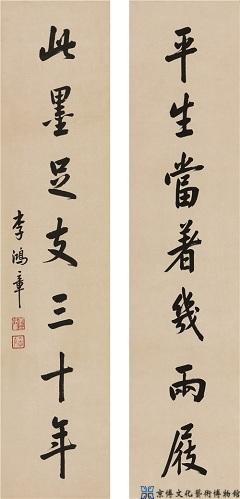 平生當著幾兩屐
此墨足支三十年
李鴻章
京傅文化藝術博物館